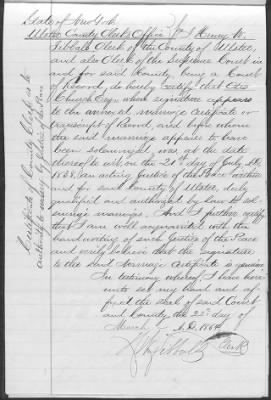 State of New York
Ulster County Clerk's Office I Henry W.
Tibbals Clerk of the County of Ulster,
and also Clerk of the Supreme Court in
and for said County, being a Court
of Record, do hereby certify that
Church Esq. whose signature appears
to the annexed marriage certificate or
transcript of Record, and before whom
the said marriage appears to have
been solemnized was, at the date
thereof to wit, on the 21st day of July AD
185, an acting Justice of the Peace
for said County of Ulster, duly
qualified and authorized by law to sol-
emnize marriages. And I further certify
that I am well acquainted with the
handwriting of such Justice of the Peace
and verily believe that the signature
to the said marriage certificate is genuine
In testimony whereof I have here
unto set my hand and af-
fixed the seal of said Court
and County, the 22d day of
March A.D.
Tibbals Clerk
Certificate of County Clerk as to
authority to